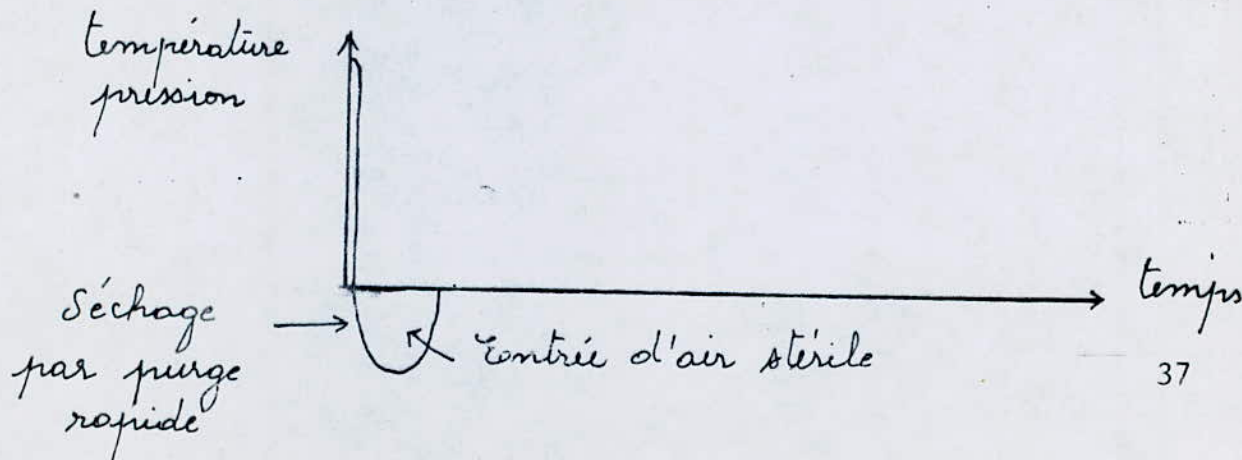 température
pression
temps
Séchage
par purge
rapide
Entrée d'air stérile
37